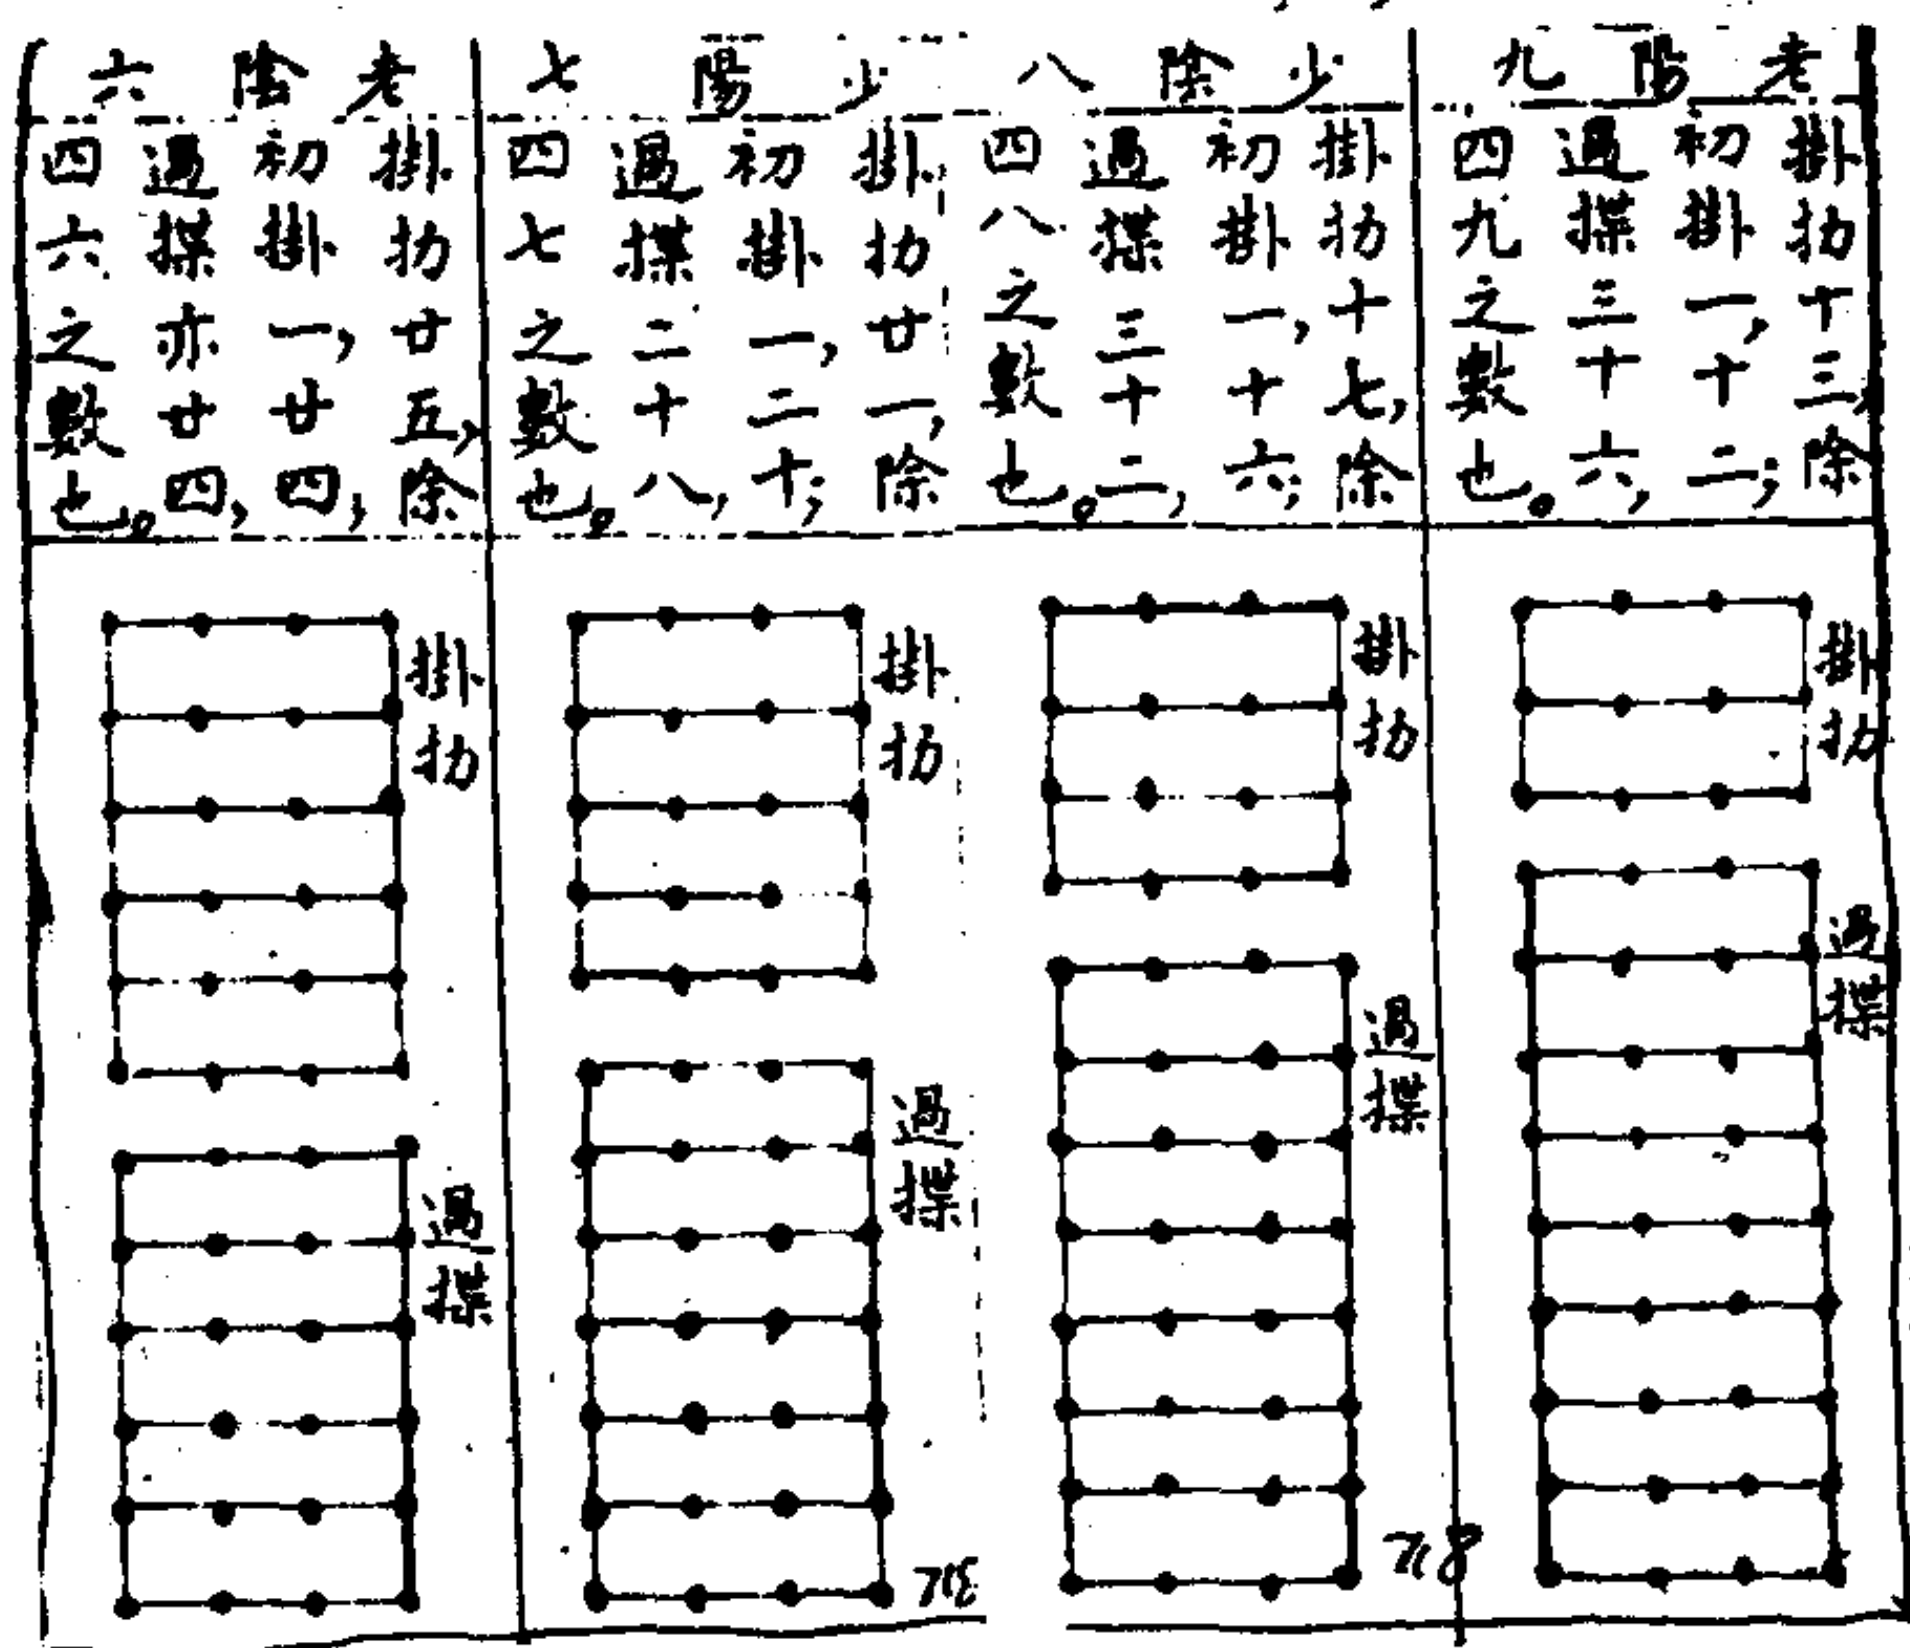 老陽九
掛扐十三,除
初掛一,十二;
過揲三十六,
四九之數也。
掛扐
過揲
少陰八
掛扐十七,除
初掛一,十六;
過揲三十二,
四八之數也。
掛扐
過揲
少陽七
掛扐廿一,除
初掛一,二十;
過揲二十八,
四七之數也。
掛扐
過揲
老陰六
掛扐廿五,除
初掛一,廿四,
過揲亦廿四,
四六之數也。
掛扐
過揲